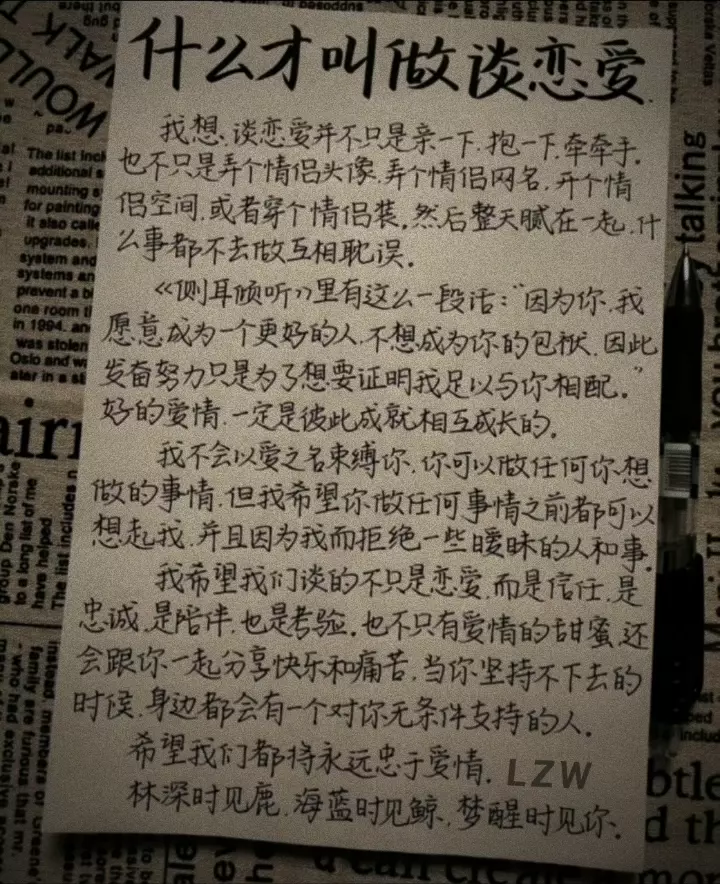 什么才叫做谈恋爱
我想、谈恋爱并不只是亲一下.抱一下.牵牵手.
也不只是弄个情侣头像.弄个情侣网名.开个情
侣空间.或者穿个情侣装。然后整天腻在一起.什
么事都不去做互相耽误。
《侧耳倾听》里有这么一段话:“因为你.我
愿意成为一个更好的人.不想成为你的包袱.因此
发奋努力只是为了想要证明我足以与你相配。”
好的爱情.一定是彼此成就相互成长的。
我不会以爱之名束缚你.你可以做任何你想
做的事情.但我希望你做任何事情之前都可以
想起我.并且因为我而拒绝一些暧昧的人和事.
我希望我们谈的不只是恋爱.而是信任.是
忠诚.是陪伴.也是考验。也不只有爱情的甜蜜.还
会跟你一起分享快乐和痛苦.当你坚持不下去的
时侯.身边都会有一个对你无条件支持的人.
希望我们都将永远忠于爱情.
LZW
林深时见鹿.海蓝时见鲸.梦醒时见你.
WOULD
WALK T
talking
The list incl
additional s
mounting s
for painting
it also calle
upgrades.
system and
systems an
prevent a b
one room t
in 1994. and
was stolen
Oslo and wa
ater in a st
airi
group Den Norske
to a long list of me
have helped
The list includes n
instead, members of Greene'
family are furious that mr.
- who had exclusive acce
btle
d th
u can create